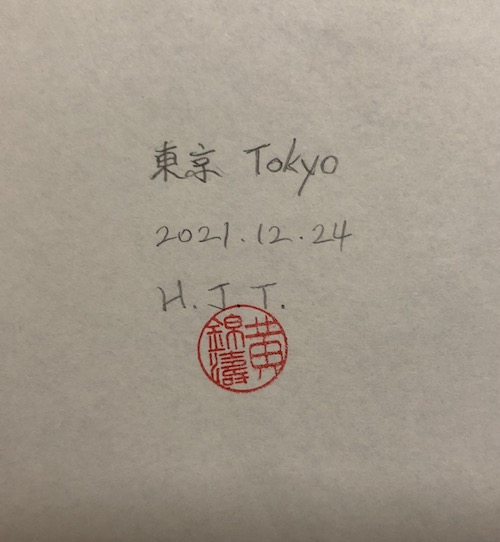 東京 Tokyo
2021.12.24
H.J.T.
黄錦濤